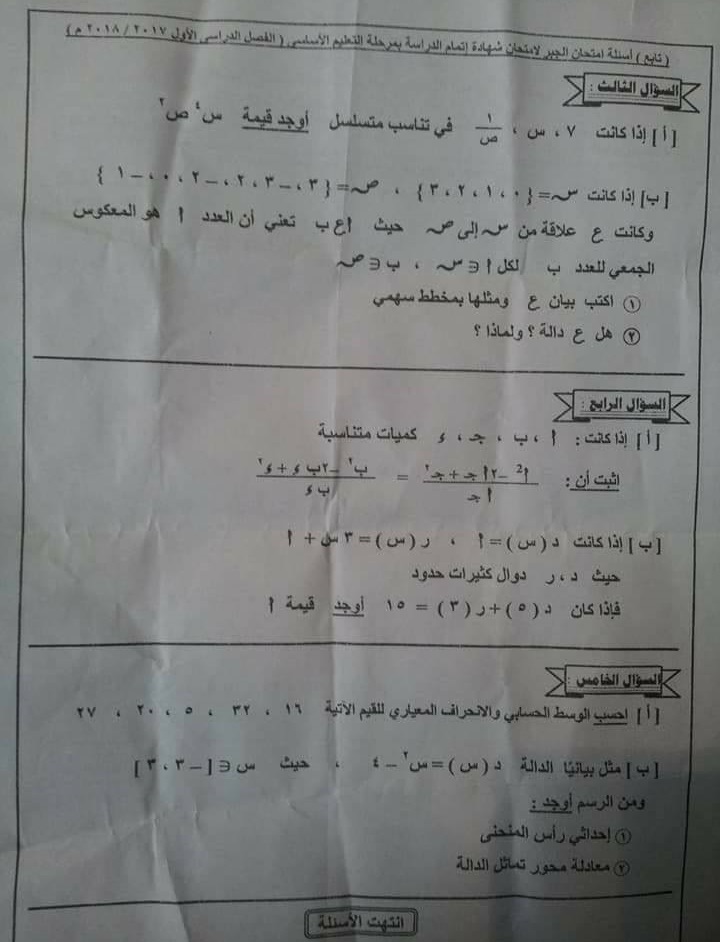 ( تابع ) أسئلة امتحان الجبر لامتحان شهادة إتمام الدراسة بمرحلة التعليم الأساسي ( الفصل الدراسي الأول ٢٠١٧ / ٢٠١٨ م )
السؤال الثالث :
[ أ ] إذا كانت ٧ ، س ، ١/ص في تناسب متسلسل أوجد قيمة س٤ ص٢
[ ب] إذا كانت س = { ٠ ، ١ ، ٢ ، ٣ } ، ص = { ٣ ، −٣ ، ٢ ، −٢ ، ٠ ، −١ }
وكانت ع علاقة من س إلى ص حيث أ ع ب تعني أن العدد أ هو المعكوس
الجمعي للعدد ب لكل أ ∈ س ، ب ∈ ص
① اكتب بيان ع ومثلها بمخطط سهمي
② هل ع دالة ؟ ولماذا ؟
السؤال الرابع :
[ أ ] إذا كانت : أ ، ب ، جـ ، ء كميات متناسبة
اثبت أن : (أ2 − ٢أ جـ + جـ٢)/(أ جـ) = (ب٢ − ٢ب ء + ء٢)/(ب ء)
[ ب ] إذا كانت د ( س ) = أ ، ر ( س ) = ٣ س + أ
حيث د ، ر دوال كثيرات حدود
فإذا كان د ( ٥ ) + ر ( ٣ ) = ١٥ أوجد قيمة أ
السؤال الخامس :
[ أ ] احسب الوسط الحسابي والانحراف المعياري للقيم الآتية ١٦ ، ٣٢ ، ٥ ، ٢٠ ، ٢٧
[ ب ] مثل بيانيًا الدالة د ( س ) = س٢ − ٤ ، حيث س ∈ [ −٣ ، ٣ ]
ومن الرسم أوجد :
① إحداثي رأس المنحنى
② معادلة محور تماثل الدالة
انتهت الأسئلة